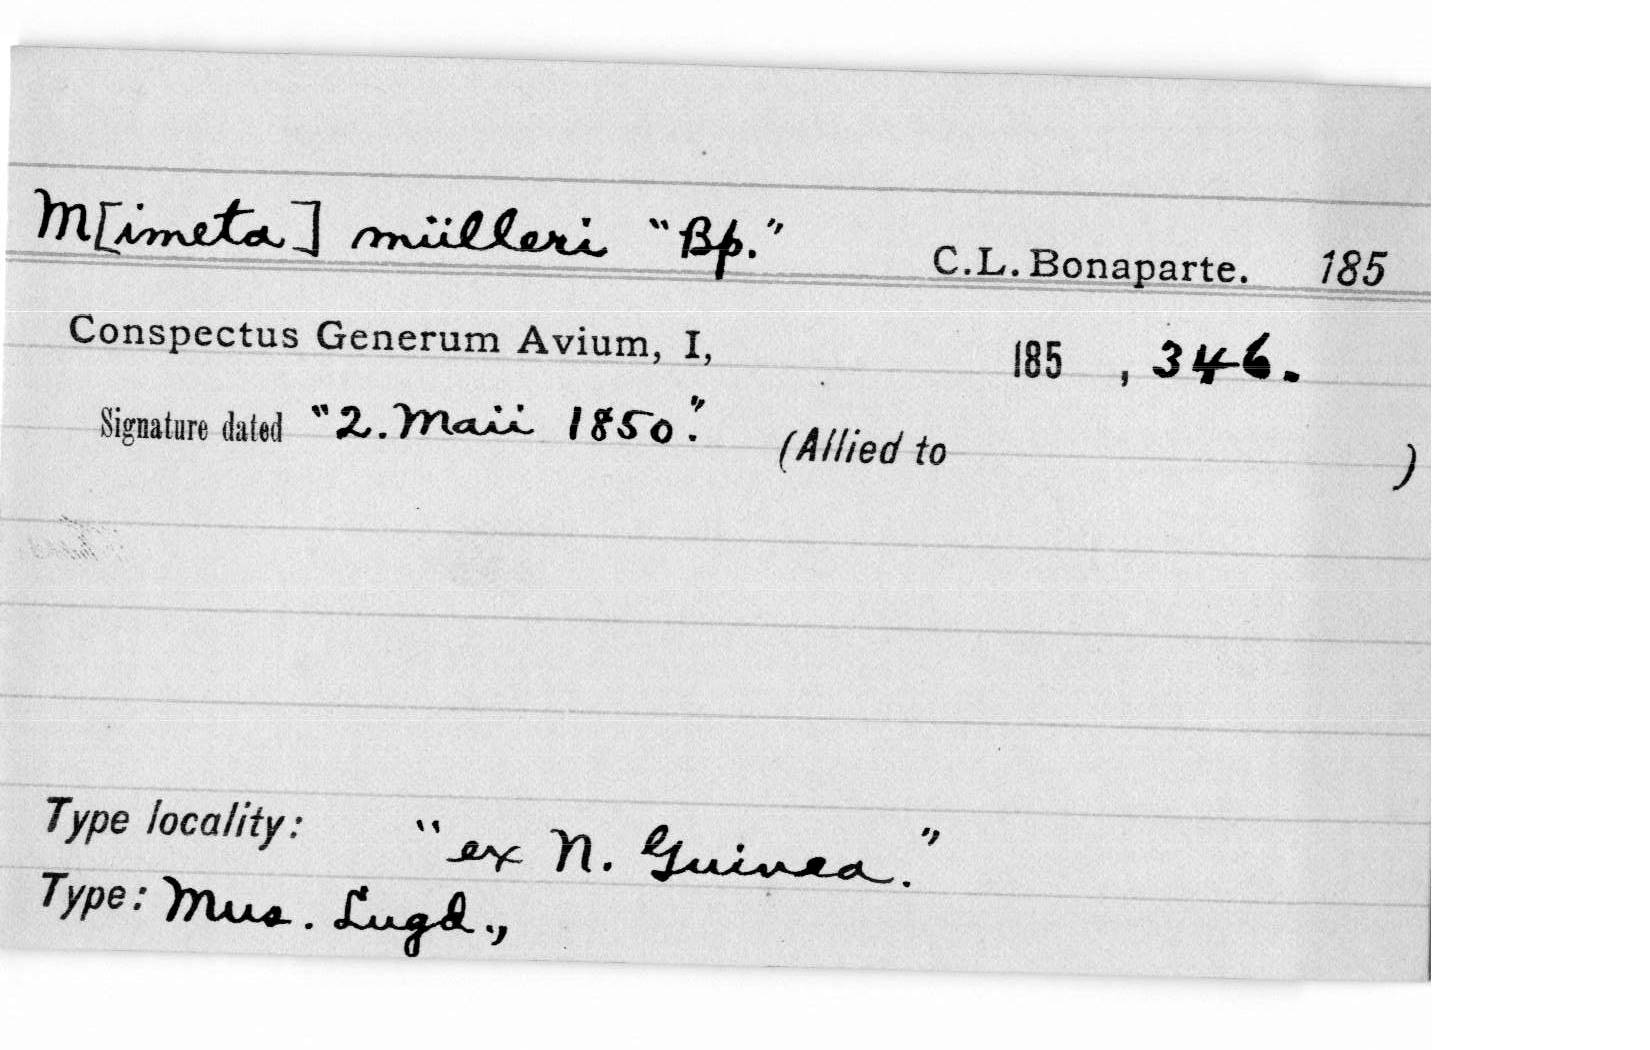 M[imeta] mülleri "Bp." C.L. Bonaparte. 185
Conspectus Generum Avium, I, 185 , 346.
Signature dated "2. Maii 1850." (Allied to )
Type locality: "ex N. Guinea."
Type: Mus. Lugd.,